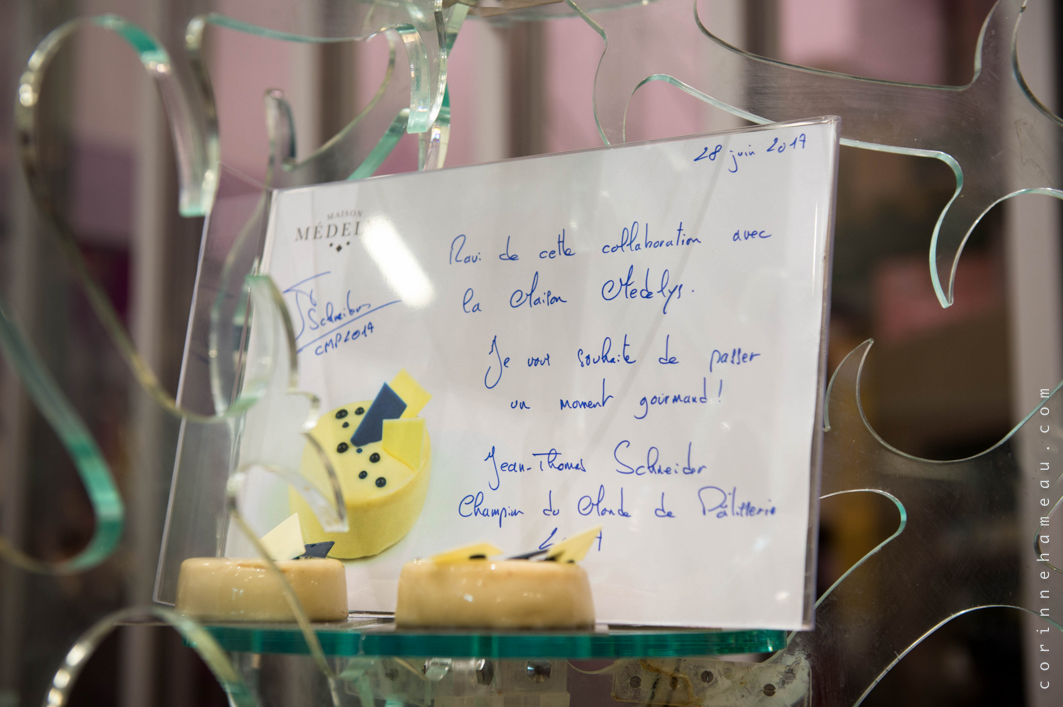 28 juin 2017
MAISON
Ravi de cette collaboration avec
la Maison Medelys.
Schneider
CMP2017
Je vous souhaite de passer
un moment gourmand !
Jean-Thomas Schneider
Champion du Monde de Pâtisserie
corinnehameau.com